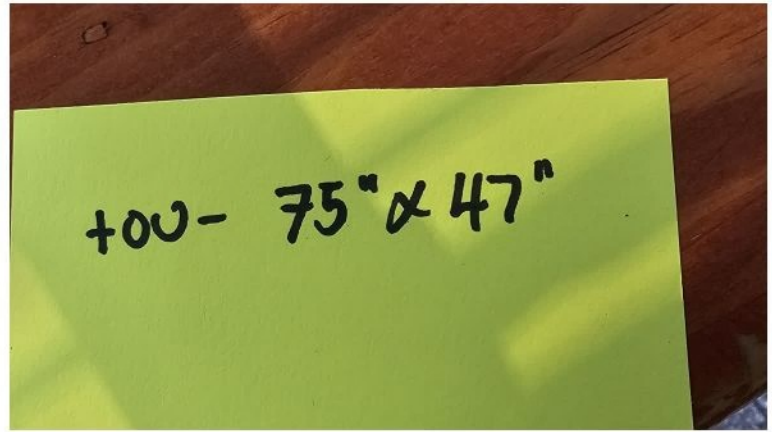 tou- 75" x 47"